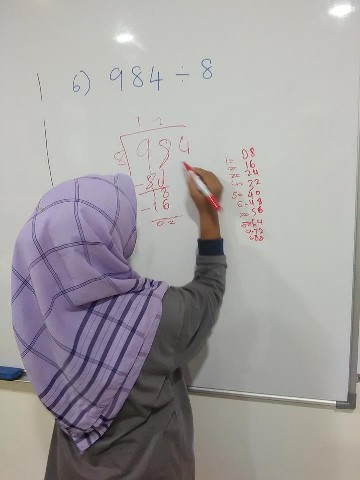 6) 984 ÷ 8
1 2
8 984
- 8↓
18
- 16
02
1= 08
2= 16
3= 24
4= 32
5= 40
6= 48
7= 56
8= 64
9= 72
080